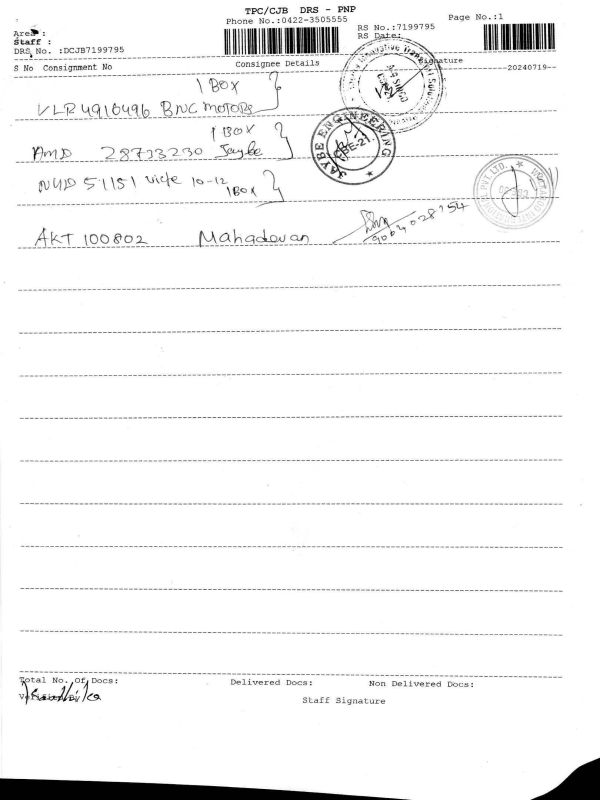 TPC/CJB DRS - PNP
Phone No.:0422-3505555
Page No.:1
Area :
RS No.:7199795
Staff :
RS Date:
DRS No. :DCJB7199795
:7199795
S No Consignment No Consignee Details Signature
--20240719--
1 BOX
VLR4910496 BNC MOTORS
1 BOX
AMD 28733230 Jaybe
JAYBE ENGINEERING
CBE-21.
51151 10-12
1 BOX
PVT LTD.
AKT 100802 Mahadevan
Total No. Of Docs: Delivered Docs: Non Delivered Docs:
Staff Signature